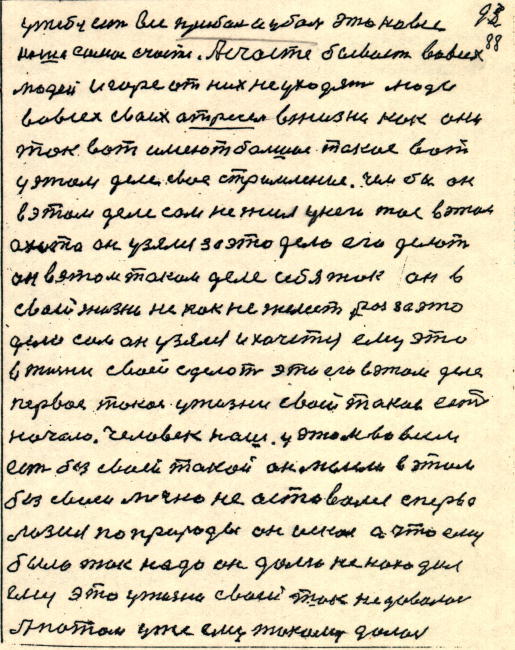 у тебя есть Все прибыл и убыл это новое
наше самое счасте. А счасте бывает во всех
людей и горе от них не уходят люди
во всех своих атресел в жизни как они
так вот имеют большое такое вот
у этом деле свое стремление. Чем бы он
в этом деле сам не жил у него тое в этом
охота он узяли за это дело его делат
он в этом таком деле себя так он в
своей жизни не как не жалеет раз за это
дело сам он узяли и хочется ему это
в жизни своей сделоть это его в этом деле
первое такое у жизни своей такое есть
начало. Человек наш. у этом во всем
есть без своей такой он мысли в этом
без своей лично не оставался сперва
лазил по природы он искал а что ему
было так надо он долго не находил
ему это у жизни своей так не довалос
А потом уже ему такому далос